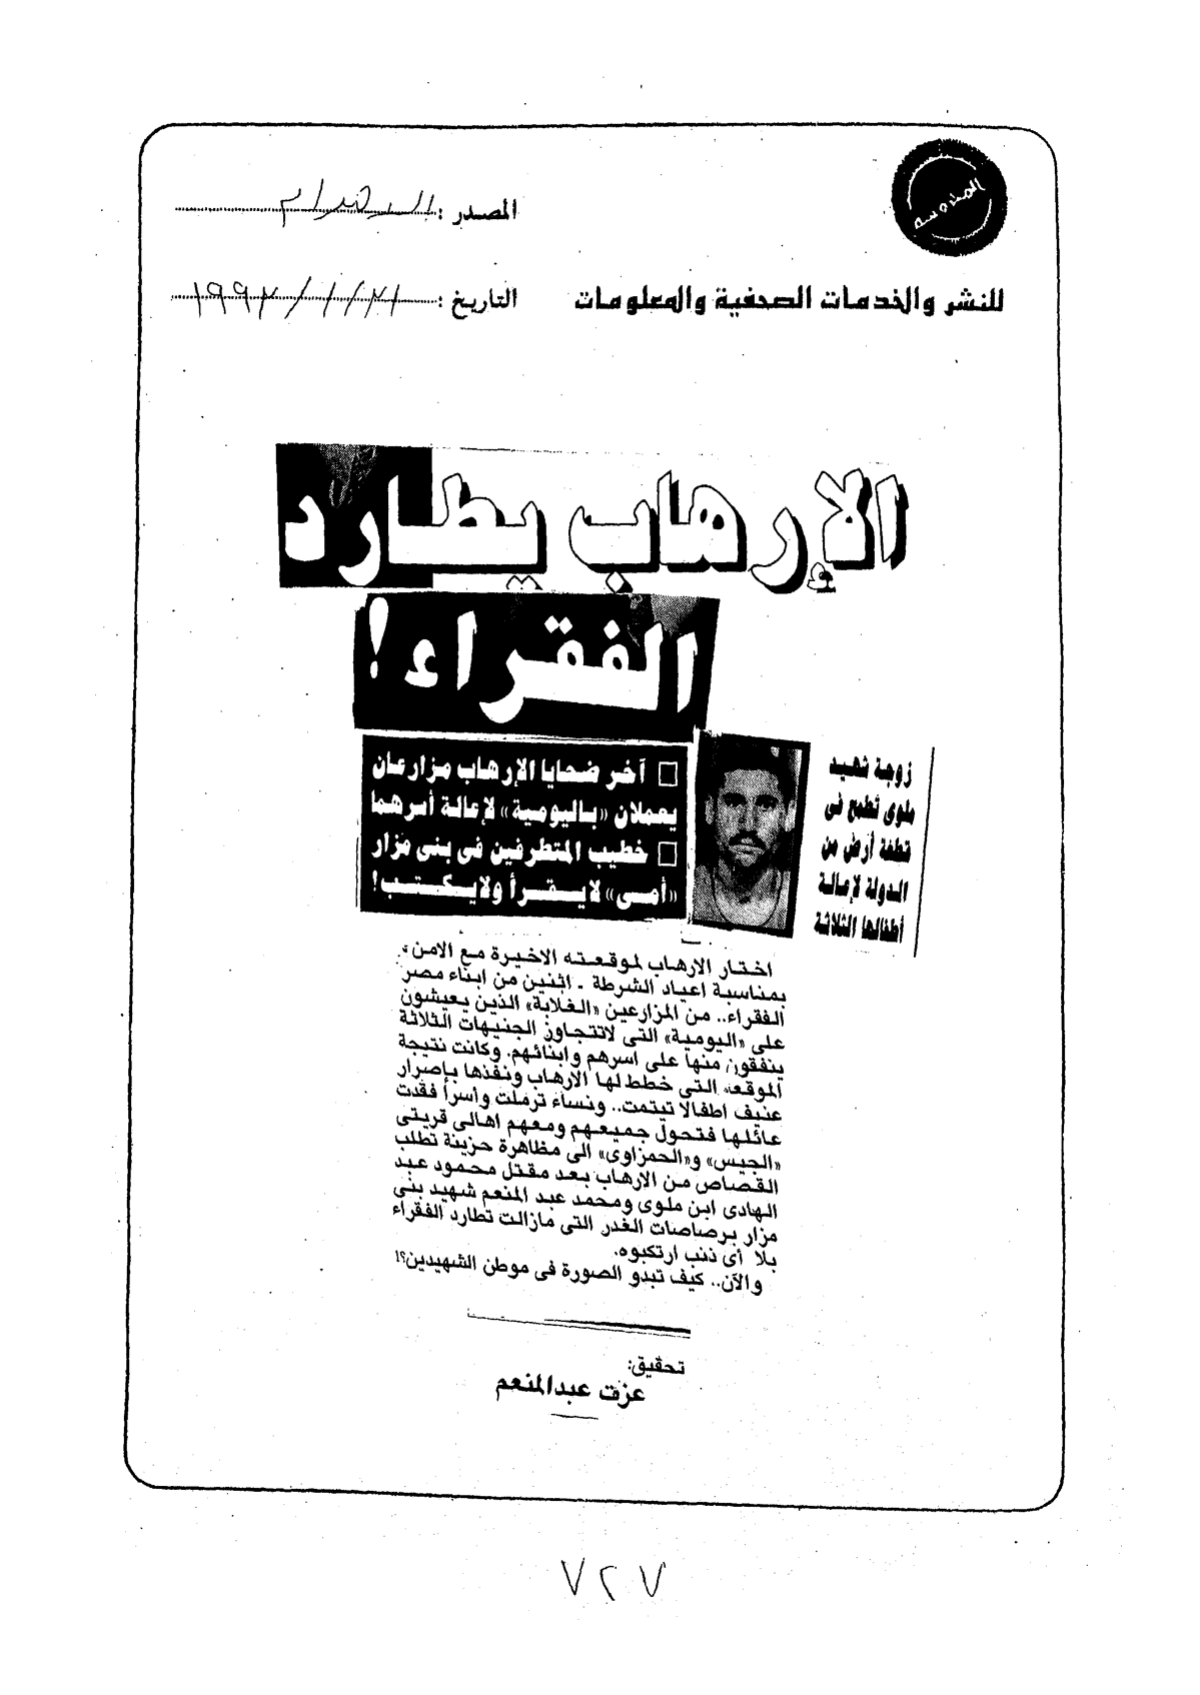 المصدر : الاهرام
للنشر والخدمات الصحفية والمعلومات
التاريخ :
الإرهاب يطارد
الفقراء !
زوجة شهيد
ملوى تطمع فى
قطعة أرض من
الدولة لإعالة
أطفالها الثلاثة
آخر ضحايا الإرهاب مزارعان
يعملان «باليومية» لإعالة أسرهما
خطيب المتطرفين فى بنى مزار
«أمى» لا يقرأ ولايكتب!
اختار الارهاب لموقعته الاخيرة مع الامن
بمناسبة اعياد الشرطة - اثنين من ابناء مصر
الفقراء.. من المزارعين «الغلابة» الذين يعيشون
على «اليومية» التى لاتتجاوز الجنيهات الثلاثة
ينفقون منها على اسرهم وابنائهم. وكانت نتيجة
الموقعة التى خطط لها الارهاب ونفذها بإصرار
عنيف اطفالا تيتمت.. ونساء ترملت وأسرأ فقدت
عائلها فتحول جميعهم ومعهم اهالى قريتى
«الجيس» و«الحمزاوى» الى مظاهرة حزينة تطلب
القصاص من الارهاب بعد مقتل محمود عبد
الهادى ابن ملوى ومحمد عبد المنعم شهيد بنى
مزار برصاصات الغدر التى مازالت تطارد الفقراء
بلا أى ذنب ارتكبوه.
والآن.. كيف تبدو الصورة فى موطن الشهيدين؟!
تحقيق:
عزت عبدالمنعم
٧٢٧